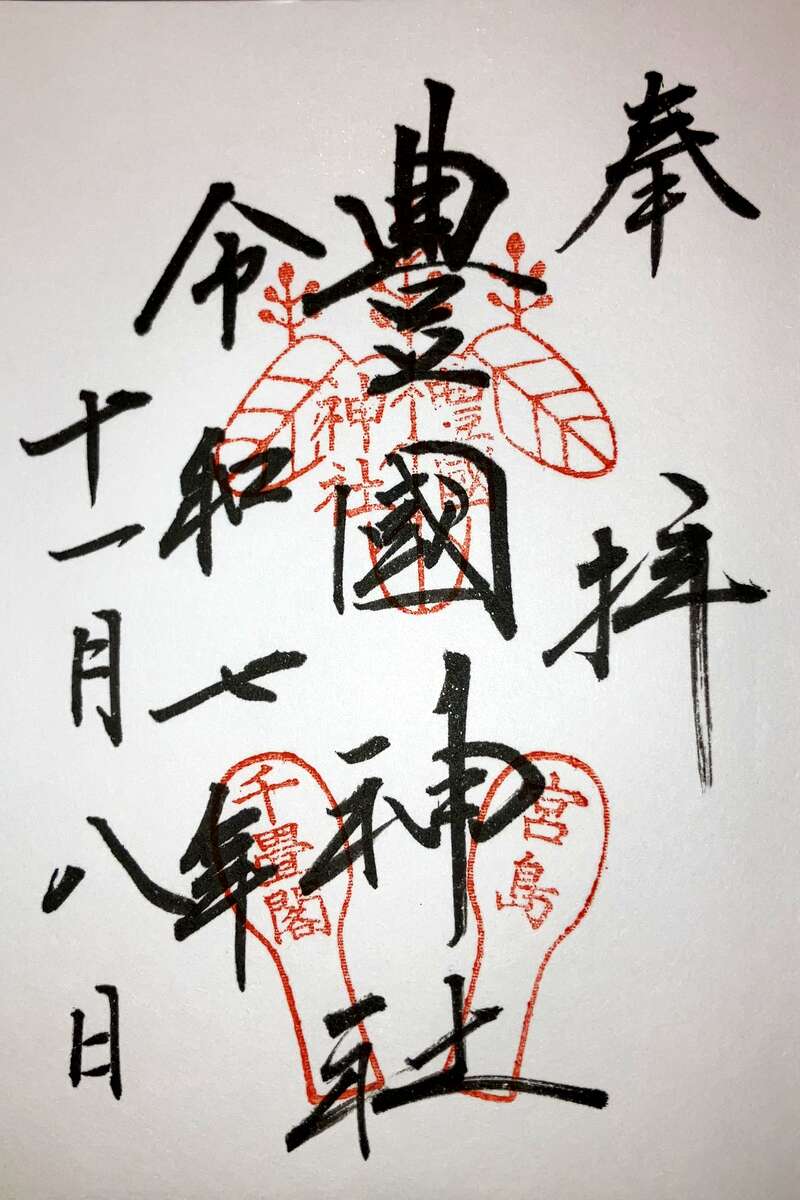 奉拝
豊國神社
令和七年
十一月八日
豊國
神社
宮島
千畳閣